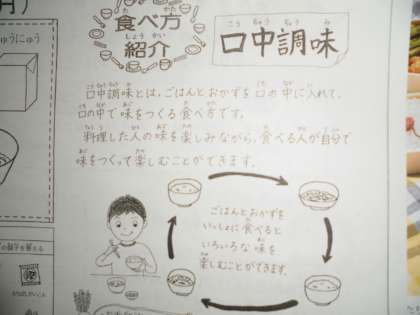 食べ方
紹介
口中調味
口中調味とは、ごはんとおかずを口の中に入れて、
口の中で味をつくる食べ方です。
料理した人の味を楽しみながら、食べる人が自分で
味をつくって楽しむことができます。
ごはんとおかずを
いっしょに食べると
いろいろな味を
楽しむことができます。